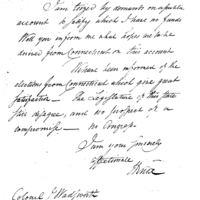 I am forced by demands on a private
account to satisfy which I have no funds
Will you inform me what hopes are to be
derived from Connecticut on this account
We have been informed of the
elections from Connecticut which give great
satisfaction – The Legislature of this State
full disagree, and no prospect of a
compromise – no Congress
I am yours sincerely
Affectionate
Knox
Colonel J Wadsworth